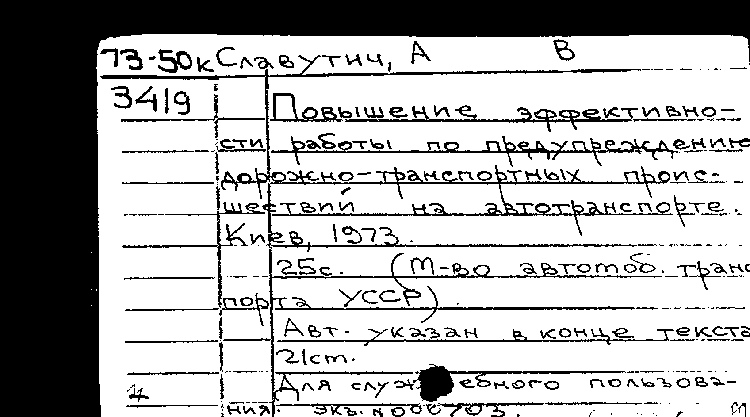 73-50к Славутич, А В
3419
Повышение эффективно-
сти работы по предупреждению
дорожно-транспортных проис-
шествий на автотранспорте.
Киев, 1973.
25с. (М-во автомоб. транс
порта УССР).
Авт. указан в конце текста
21cm.
Для служебного пользова-
ния. экз. N000703.